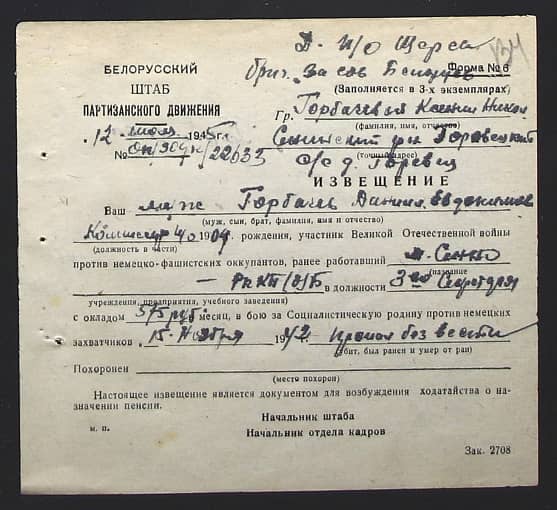 п/о Щорса
БЕЛОРУССКИЙ
бриг. За сов Белорусс
Форма № 6
ШТАБ
(Заполняется в 3-х экземплярах)
ПАРТИЗАНСКОГО ДВИЖЕНИЯ
Гр. Горбачевой Ксении Никол
(фамилия, имя, отчество)
12 июля 1945 г.
Сенненский рн Горовецкий
(точный адрес)
№ /22633
с/с д.
ИЗВЕЩЕНИЕ
Ваш муж Горбачев Даниил Евдокимов
(муж, сын, брат, фамилия, имя и отчество)
Комиссар 1904 рождения, участник Великой Отечественной войны
(должность в части)
против немецко-фашистских оккупантов, ранее работавший м. Сенно
(название
РК КП/б/Б в должности 3го Секретаря
учреждения, предприятия, учебного заведения)
с окладом 575 руб месяц, в бою за Социалистическую родину против немецких
захватчиков 15 Ноября 1942 пропал без вести
(убит, был ранен и умер от ран)
Похоронен
(место похорон)
Настоящее извещение является документом для возбуждения ходатайства о на-
значении пенсии.
Начальник штаба
м. п.
Начальник отдела кадров
Зак. 2708